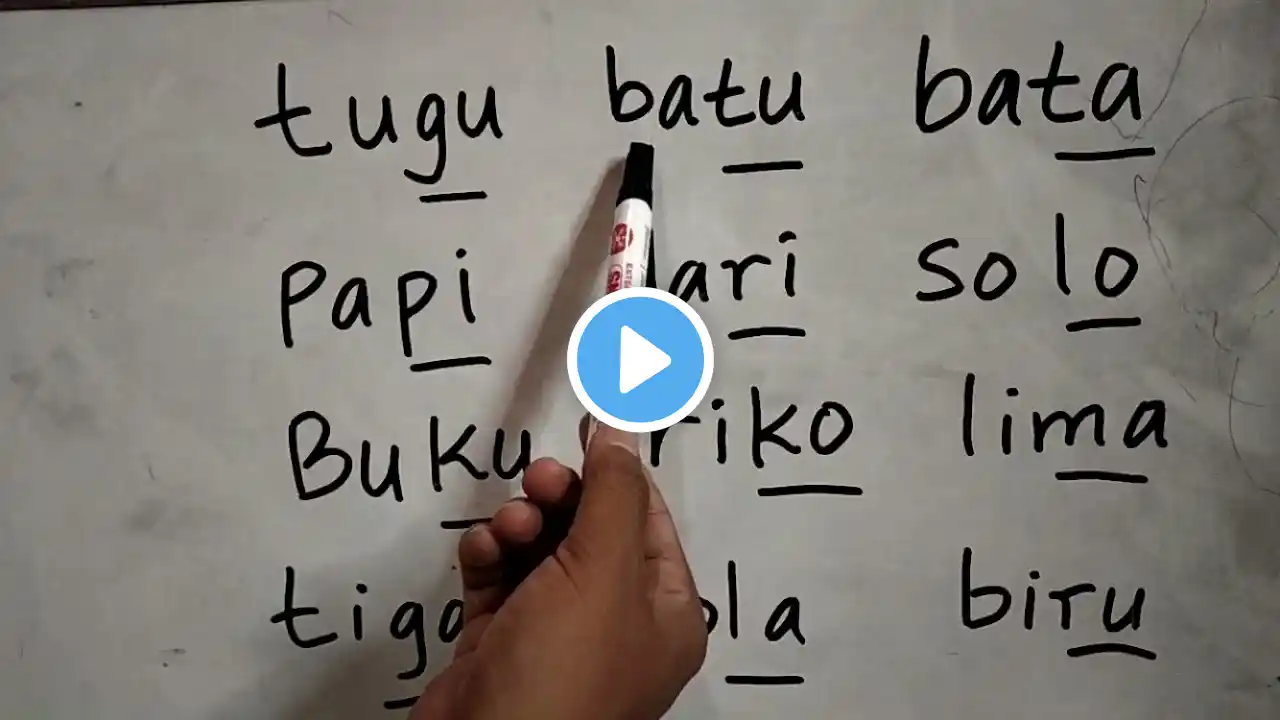 tugu batu bata
Papi dari solo
Buku riko lima
tiga bola biru